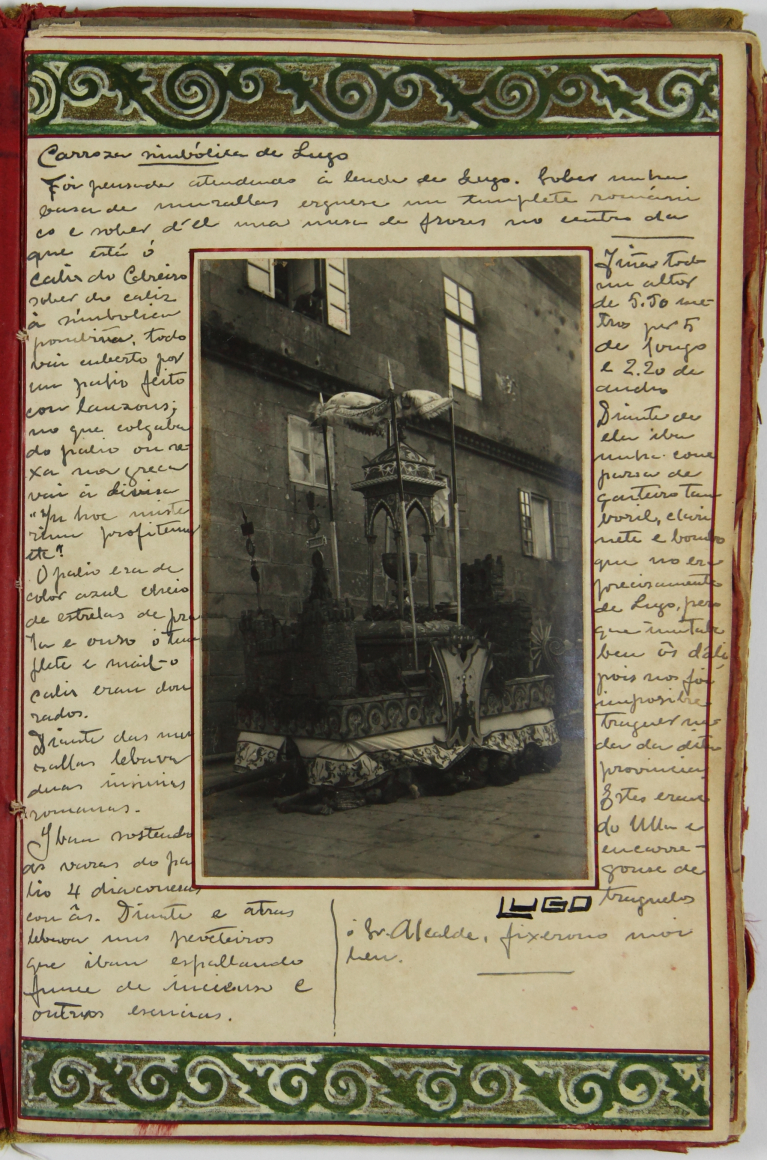 Carroza simbólica de Lugo
Foi pensada atendendo á lenda de Lugo. Sober unha
basa de murallas erguese un templete románi
co e sober d'él una mesa de froxes no centro da
que está ó
caliz do Cebreiro
sober do caliz
á simbolica
pombiña, todo
vai cuberto por
un palio feito
con lanzons;
no que colgaba
do palio ou re-
xa na greca
vai á divisa
"In hoc miste
rium
O palio era de
color azul cheio
de estrelas de pra
ta e ouro ó tem
plete e mail-o
caliz eran dou
rados.
Diante das mu
rallas lebaban
duas insinias
romanas.
Yban sostendo
as varas do pa
lio 4 diaconesas
con ás. Diante e atras
lebaban uns peveteiros
que iban espallando
fume de incienso e
outras esencias.
Viñan todo
un altor
de 5.50 me-
tros por 5
de longo
e 2.20 de
ancho
Diante de
ela iba
unha com
parsa de
gaiteiro tam
boril, clari
nete e bombo
que no era
precisamente
de Lugo, pero
que imitaba
ben ôs d'alí
pois nos foi
imposibre
traguer na
da da dita
provincia,
Estes eran
do Ulla e
encarre-
gouse de
traguelos
LUGO
ó Sr. Alcalde, fixerono moi
ben.